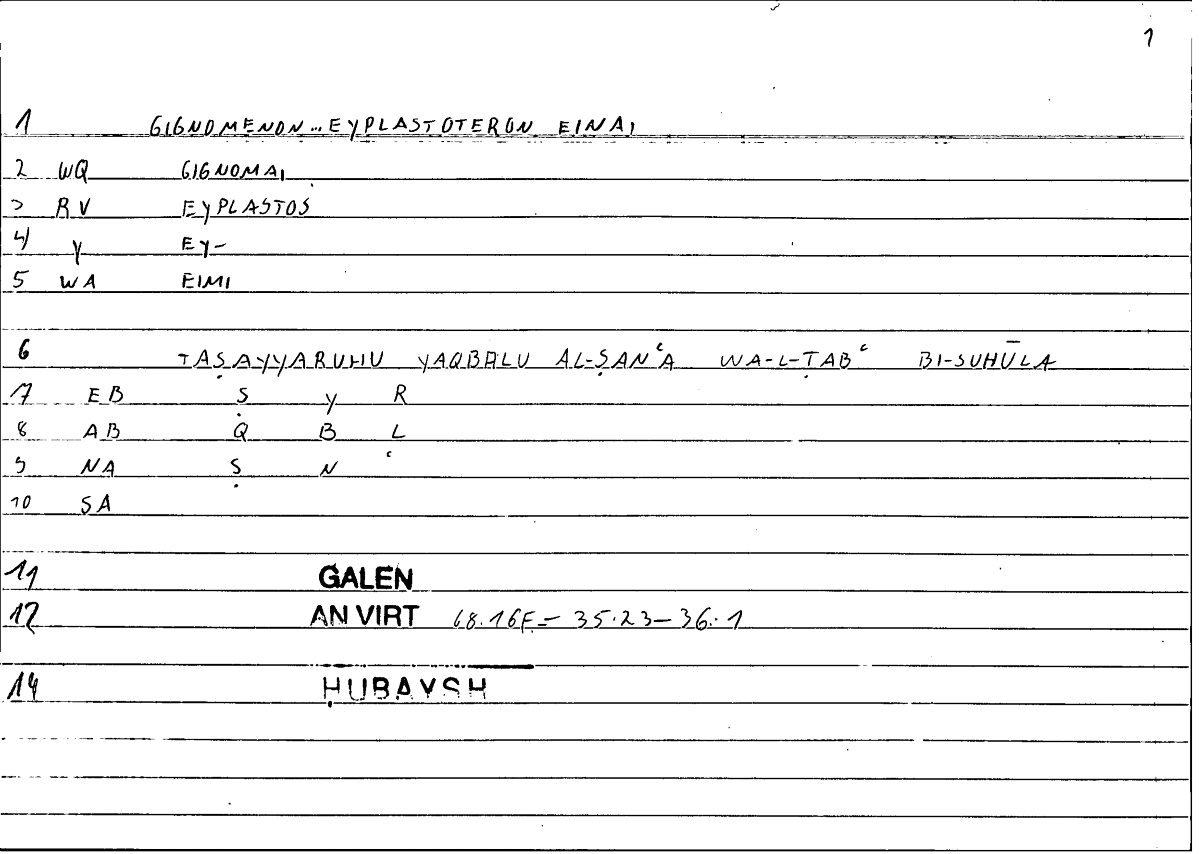 1
1 GIGNOMENON...EYPLASTOTERON EINAI
2 WQ GIGNOMAI
3 RV EYPLASTOS
4 Y EY-
5 WA EIMI
6 TAṢAYYARUHU YAQBALU AL-ṢANʿA WA-L-ṬABʿ BI-SUHŪLA
7 EB Ṣ Y R
8 AB Q B L
9 NA Ṣ N ʿ
10 SA
11 GALEN
12 AN VIRT 68.16F = 35.23–36.1
14 ḤUBAYSH